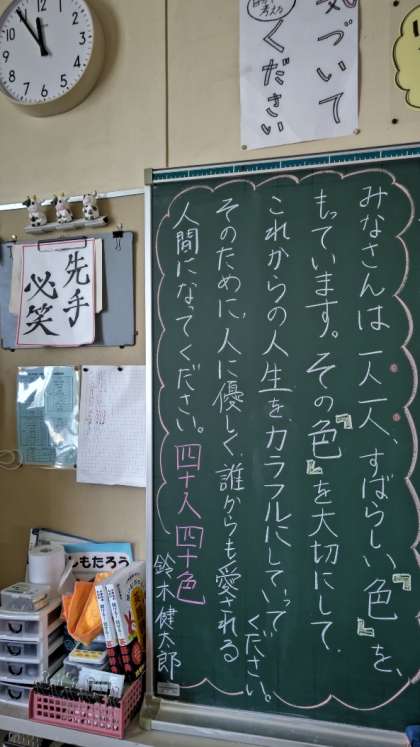 気づいて
ください
みなさんは一人一人、すばらしい『色』を、
もっています。その『色』を大切にして、
これからの人生を、カラフルにしていってください。
そのために、人に優しく、誰からも愛される
人間になってください。四十人四十色
鈴木健太郎
先手
必笑
12
11
10
9
8
7
6
5
4
3
2
1
ももたろう